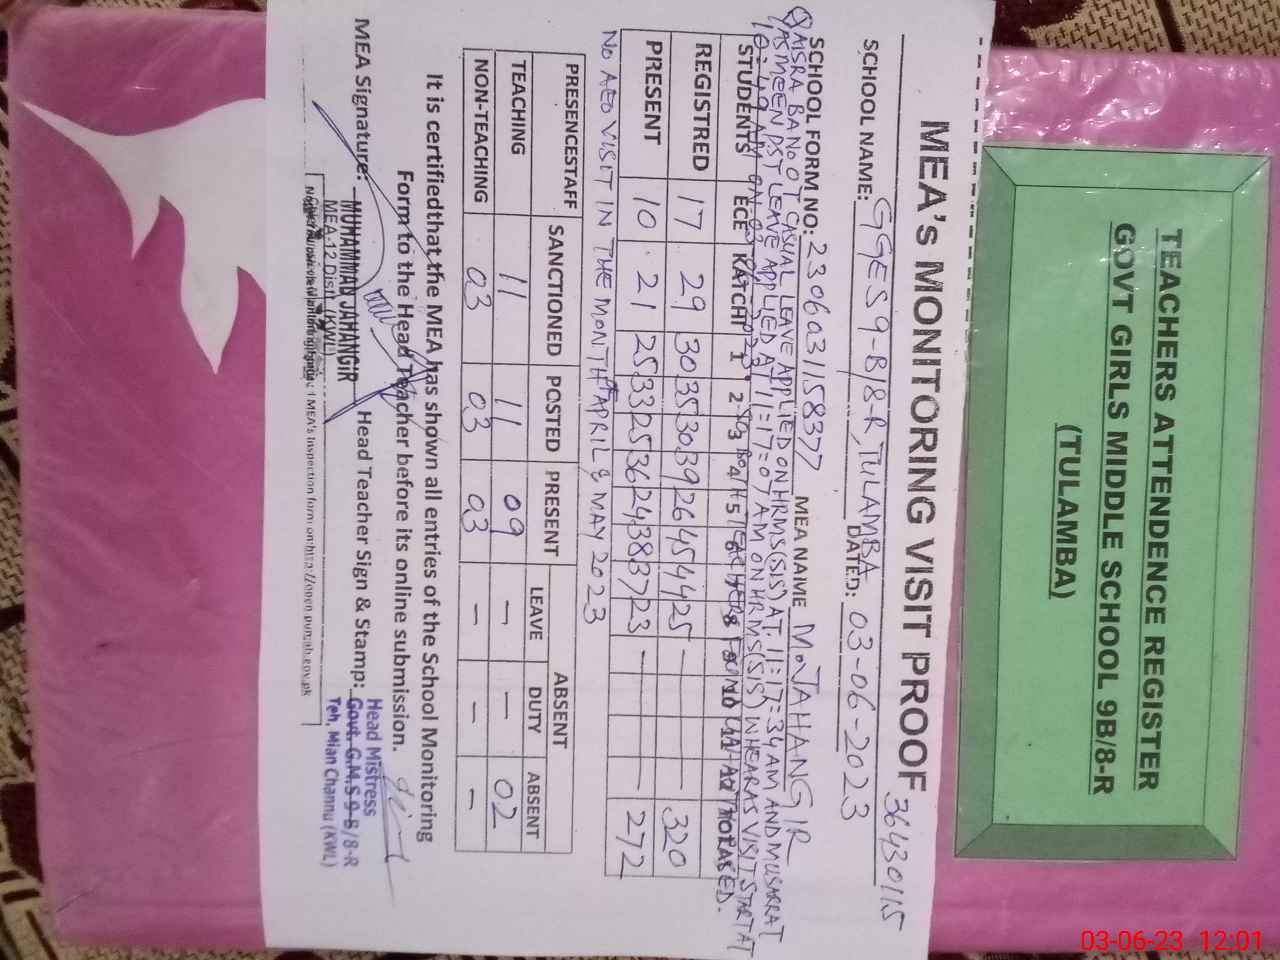 TEACHERS ATTENDENCE REGISTER
GOVT GIRLS MIDDLE SCHOOL 9B/8-R
(TULAMBA)
MEA's MONITORING VISIT PROOF
36430115
SCHOOL NAME: GGES 9-B/8-R, TULAMBA DATED: 03-06-2023
SCHOOL FORM NO: 23060311 58377 MEA NAME MOJAHANGIR
QAISRA BANO OT CASUAL LEAVE APPLIED ON HRMS(SIS) AT. 11=17=34 AM AND MUSARRAT
YASMEEN PST LEAVE APPLIED AT 11=17=07 AM ON HRMS(SIS) WHEARAS VISIT START AT
10=49 AM ON 03-06-2023. TEACHERS FOUND
STUDENTS ECE KATCHI 1 2 3 4 5 6 8 9 10
REGISTRED 17 29 30 35 30 39 26 45 44 25 — — — 320
PRESENT 10 21 25 33 25 36 24 38 37 23 — — — 272
NO AEO VISIT IN THE MONTH OF APRIL & MAY 2023
PRESENCESTAFF SANCTIONED POSTED PRESENT ABSENT
LEAVE DUTY ABSENT
TEACHING 11 11 09 — — 02
NON-TEACHING 03 03 03 — — —
It is certifiedthat the MEA has shown all entries of the School Monitoring
Form to the Head Teacher before its online submission.
MEA Signature: MUHAMMAD JAHANGIR Head Teacher Sign & Stamp:
MEA-12 Distt. (KWL)
Head Mistress
Govt. G.M.S 9-B/8-R
Teh. Mian Channu (KWL)
MEA's Inspection form on:http://open.punjab.gov.pk
03-06-23 12:01